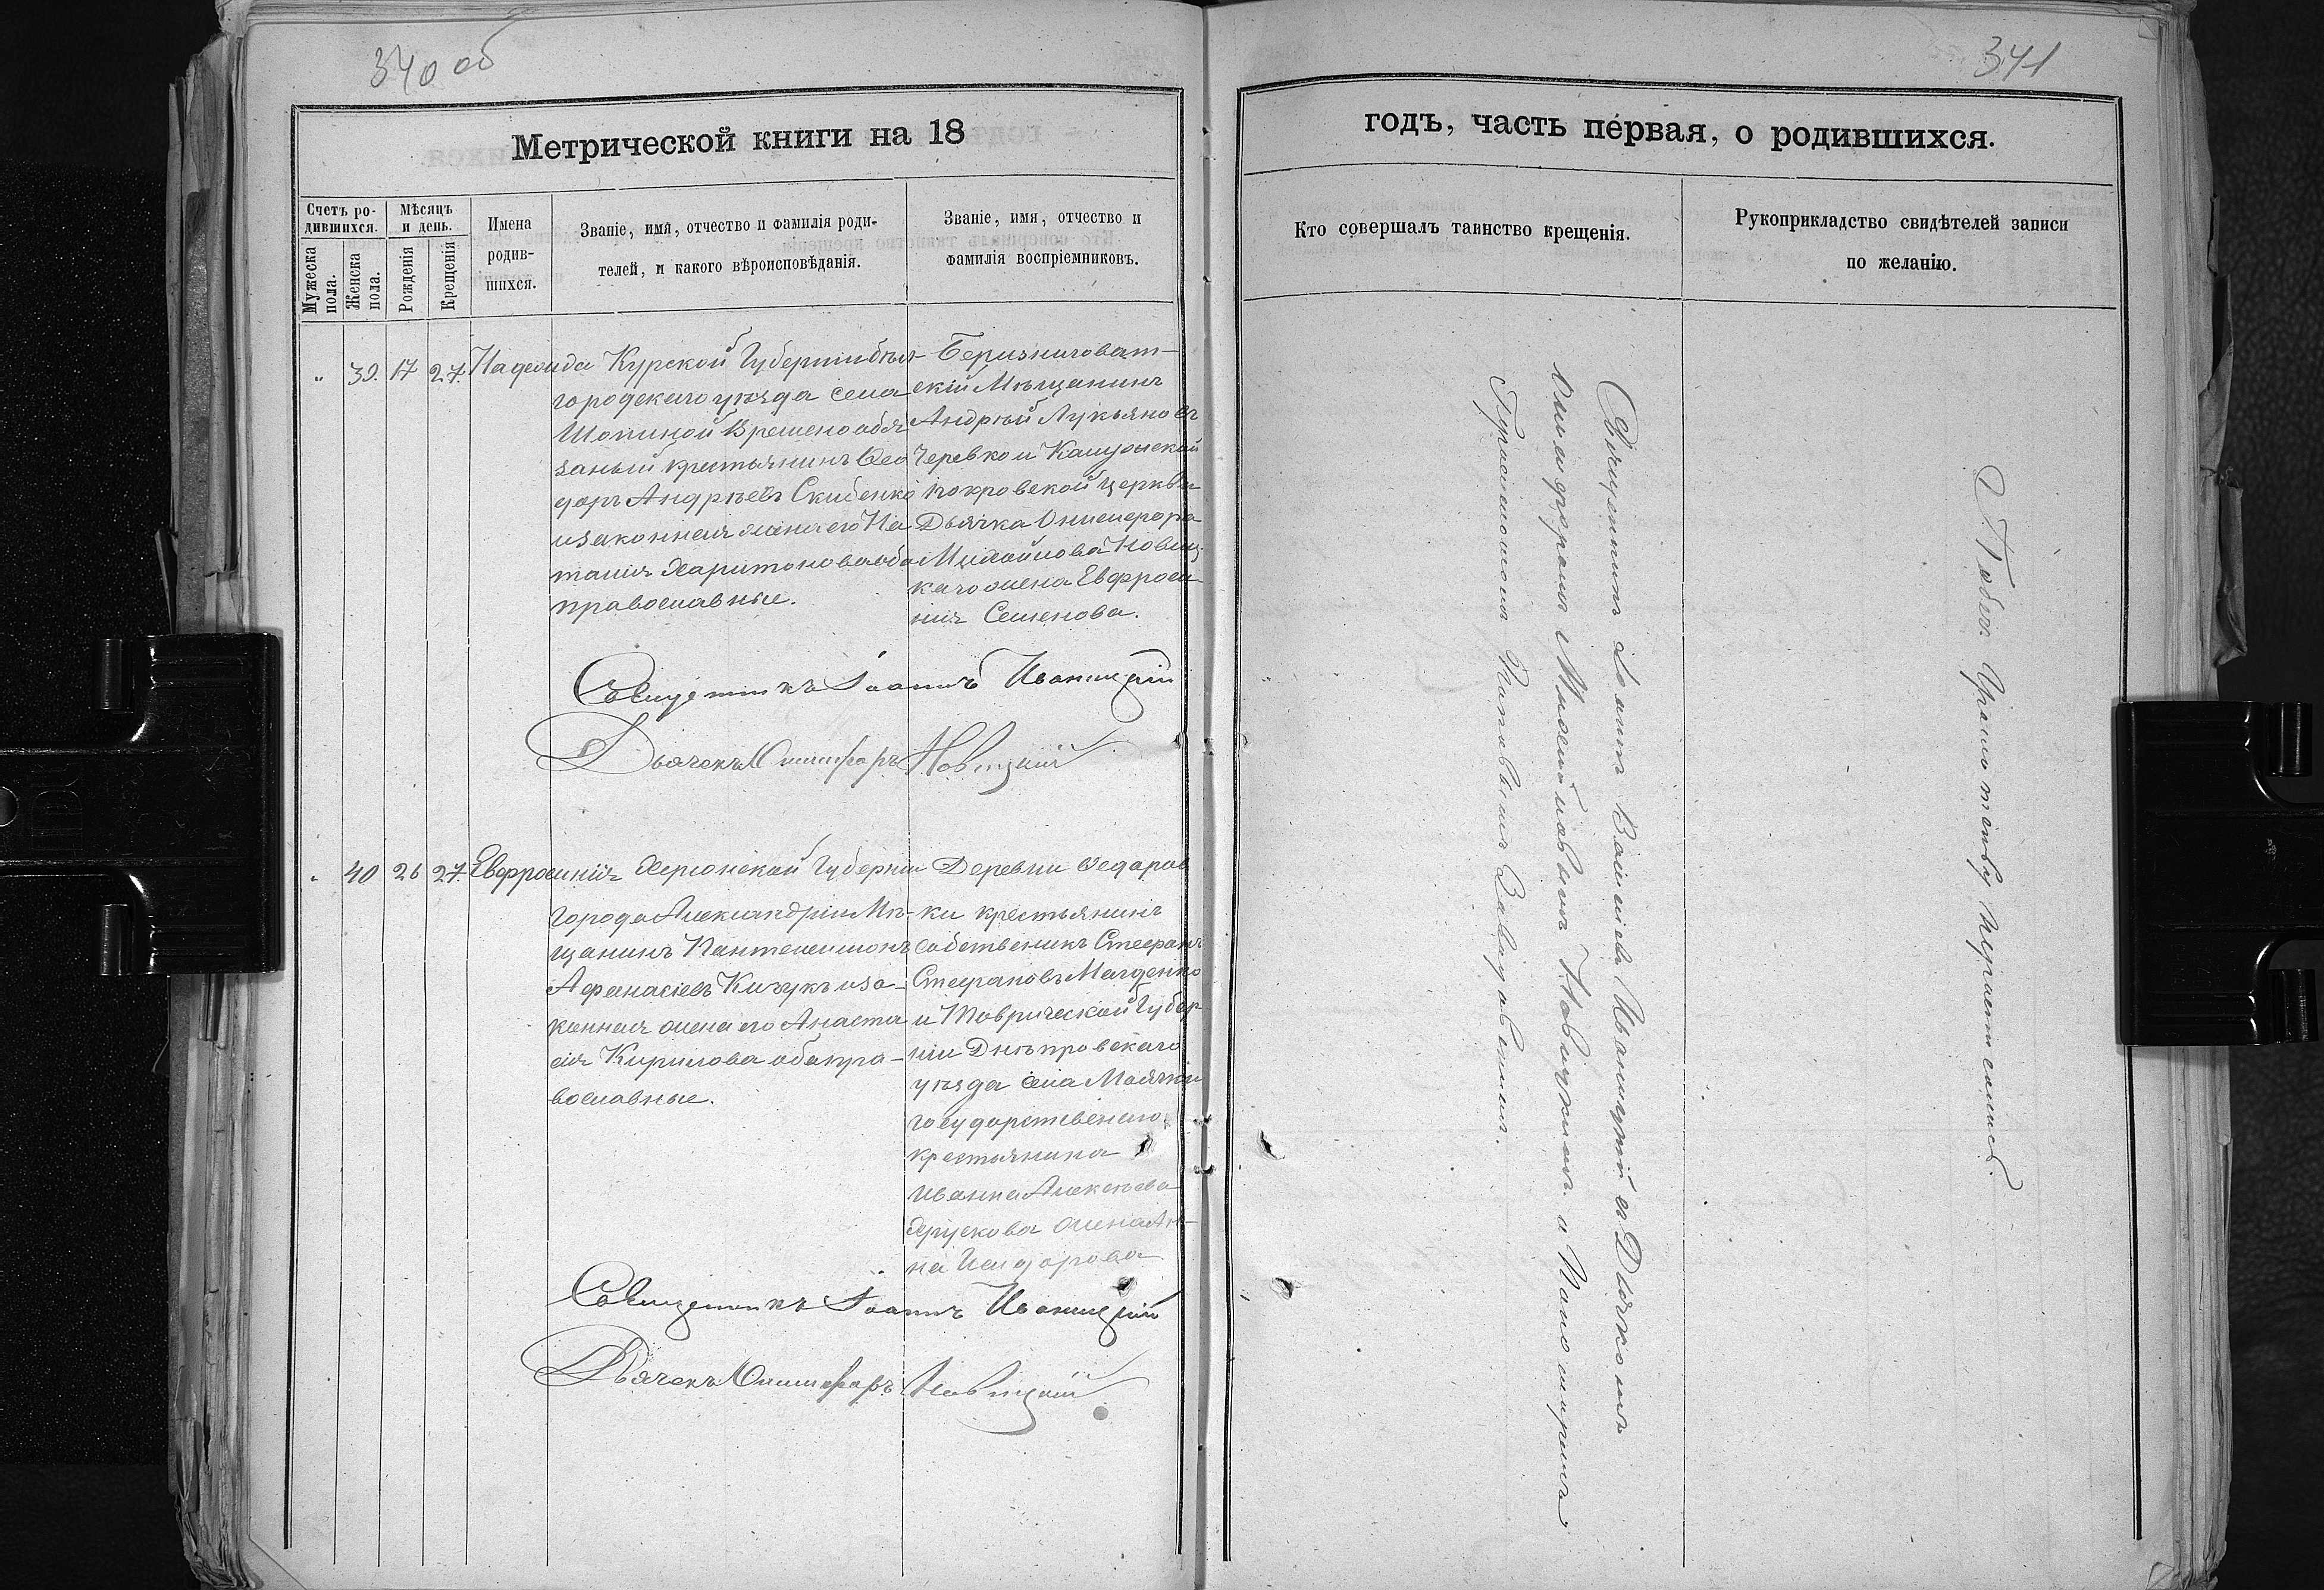 340 об
Метрической книги на 18
Счетъ ро-
дившихся.
Мѣсяцъ
и день.
Мужеска
пола.
Женска
пола.
Рожденія
Крещенія
Имена
родив-
шихся.
Званіе, имя, отчество и фамилія роди-
телей, и какого вѣроисповѣданія.
Званіе, имя, отчество и
фамилія воспріемниковъ.
" 39. 17 27. Надежда
Курской Губерніи бѣл-
городскаго уѣзда села
Шопиной Временообя
заный крестьянинъ Ѳео
доръ Андрѣевъ Скибенко
и законная жена его На
талія Харитонова оба
православные.
Беризниговат-
скій Мѣщанинъ
Андрѣй Лукьяновъ
Черевко и
Покровской церкви
Дьячка Онисифора
Михайлова Новиц
каго жена Евфроси
нія Семенова.
Священникъ Іоаннъ Иваницкій
Дьячекъ Онисифоръ Новицкій
" 40 26 27. Евфросинія
Херсонской Губерніи
города Александріи Мѣ-
щанинъ Пантелеимонъ
Афанасіевъ Кичукъ и за-
конная жена его Анаста
сія Кирилова оба пра-
вославные.
Деревни Ѳедоров
ки крестьянинъ
собственикъ Стефанъ
Стефановъ Магденко
и Таврической Губер
ніи Днѣпровскаго
уѣзда села Маячки
государственаго
крестьянина
Иванна Алексѣева
жена Ан-
на Исидорова
Священникъ Іоаннъ Иваницкій
Дьячекъ Онисифоръ Новицкій
341
годъ, часть первая, о родившихся.
Кто совершалъ таинство крещенія.
Рукоприкладство свидѣтелей записи
по желанію.
Священникъ Іоаннъ Васильевъ Иваницкій съ Дьячкомъ
Онисифоромъ Михайловымъ Новицкимъ и Пономаремъ